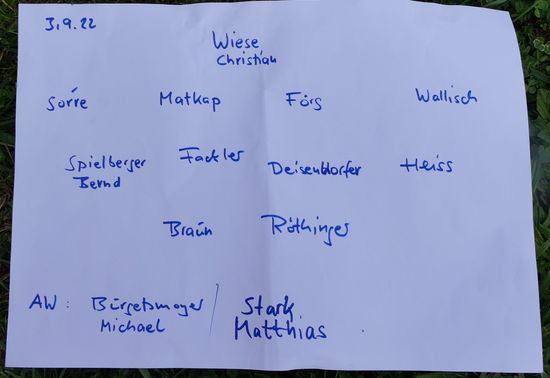 3.9.22
Wiese
Christian
Sorre Matkap Förg Wallisch
Spielberger Fackler Deisenhofer Heiss
Bernd
Braun Röthinger
AW: Bürgetsmayer / Stark
Michael Matthias